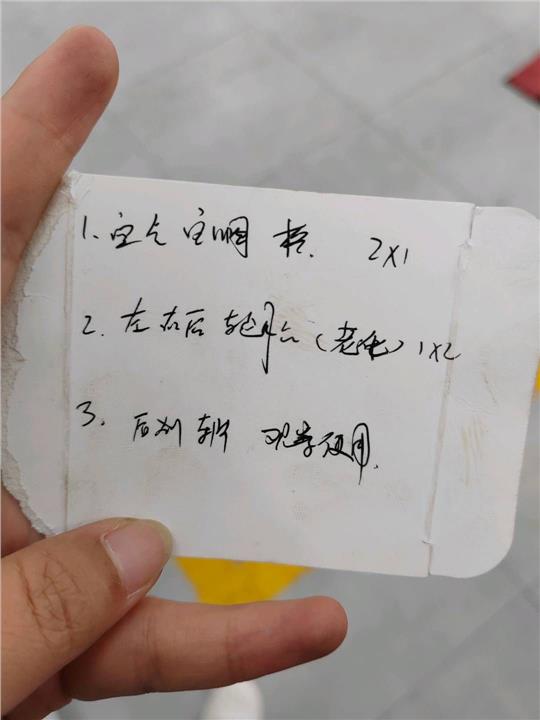 1. 空气 空调 格. 2X1
2. 左右后 轮胎 (老化) 1X2
3. 后刹车片 观察使用.